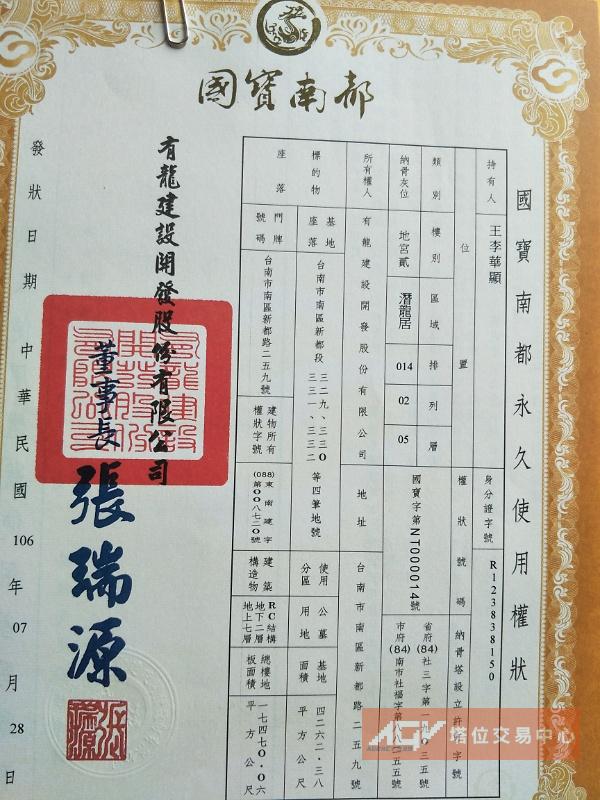 國寶南都
國寶南都永久使用權狀
持有人 王李華顯 身分證字號 R123838150
位置
類別 樓別 區域 排 列 層 權狀號碼 納骨塔設立許可字號
納骨灰位 地宮貳 潛龍居 014 02 05 國寶字第NT000014號
省府(84)社三字第
市府(84)南市社福字第
所有權人 有龍建設開發股份有限公司 地址 台南市南區新都路二五九號
標的物座落
基地座落 台南市南區新都段 三二九、三三0 三三一、三三二 等四筆地號 使用分區 公墓用地 基地面積 四二六二·三八平方公尺
門牌號碼 台南市南區新都路二五九號 建物所有權狀字號 (088)東南建字第00八七二0號 建築構造物 RC結構 地下二層 地上七層 總樓地板面積 一七四七0·0六平方公尺
有龍建設開發股份有限公司
董事長 張瑞源
發狀日期 中華民國 106 年 07 月 28 日
AGV 塔位交易中心